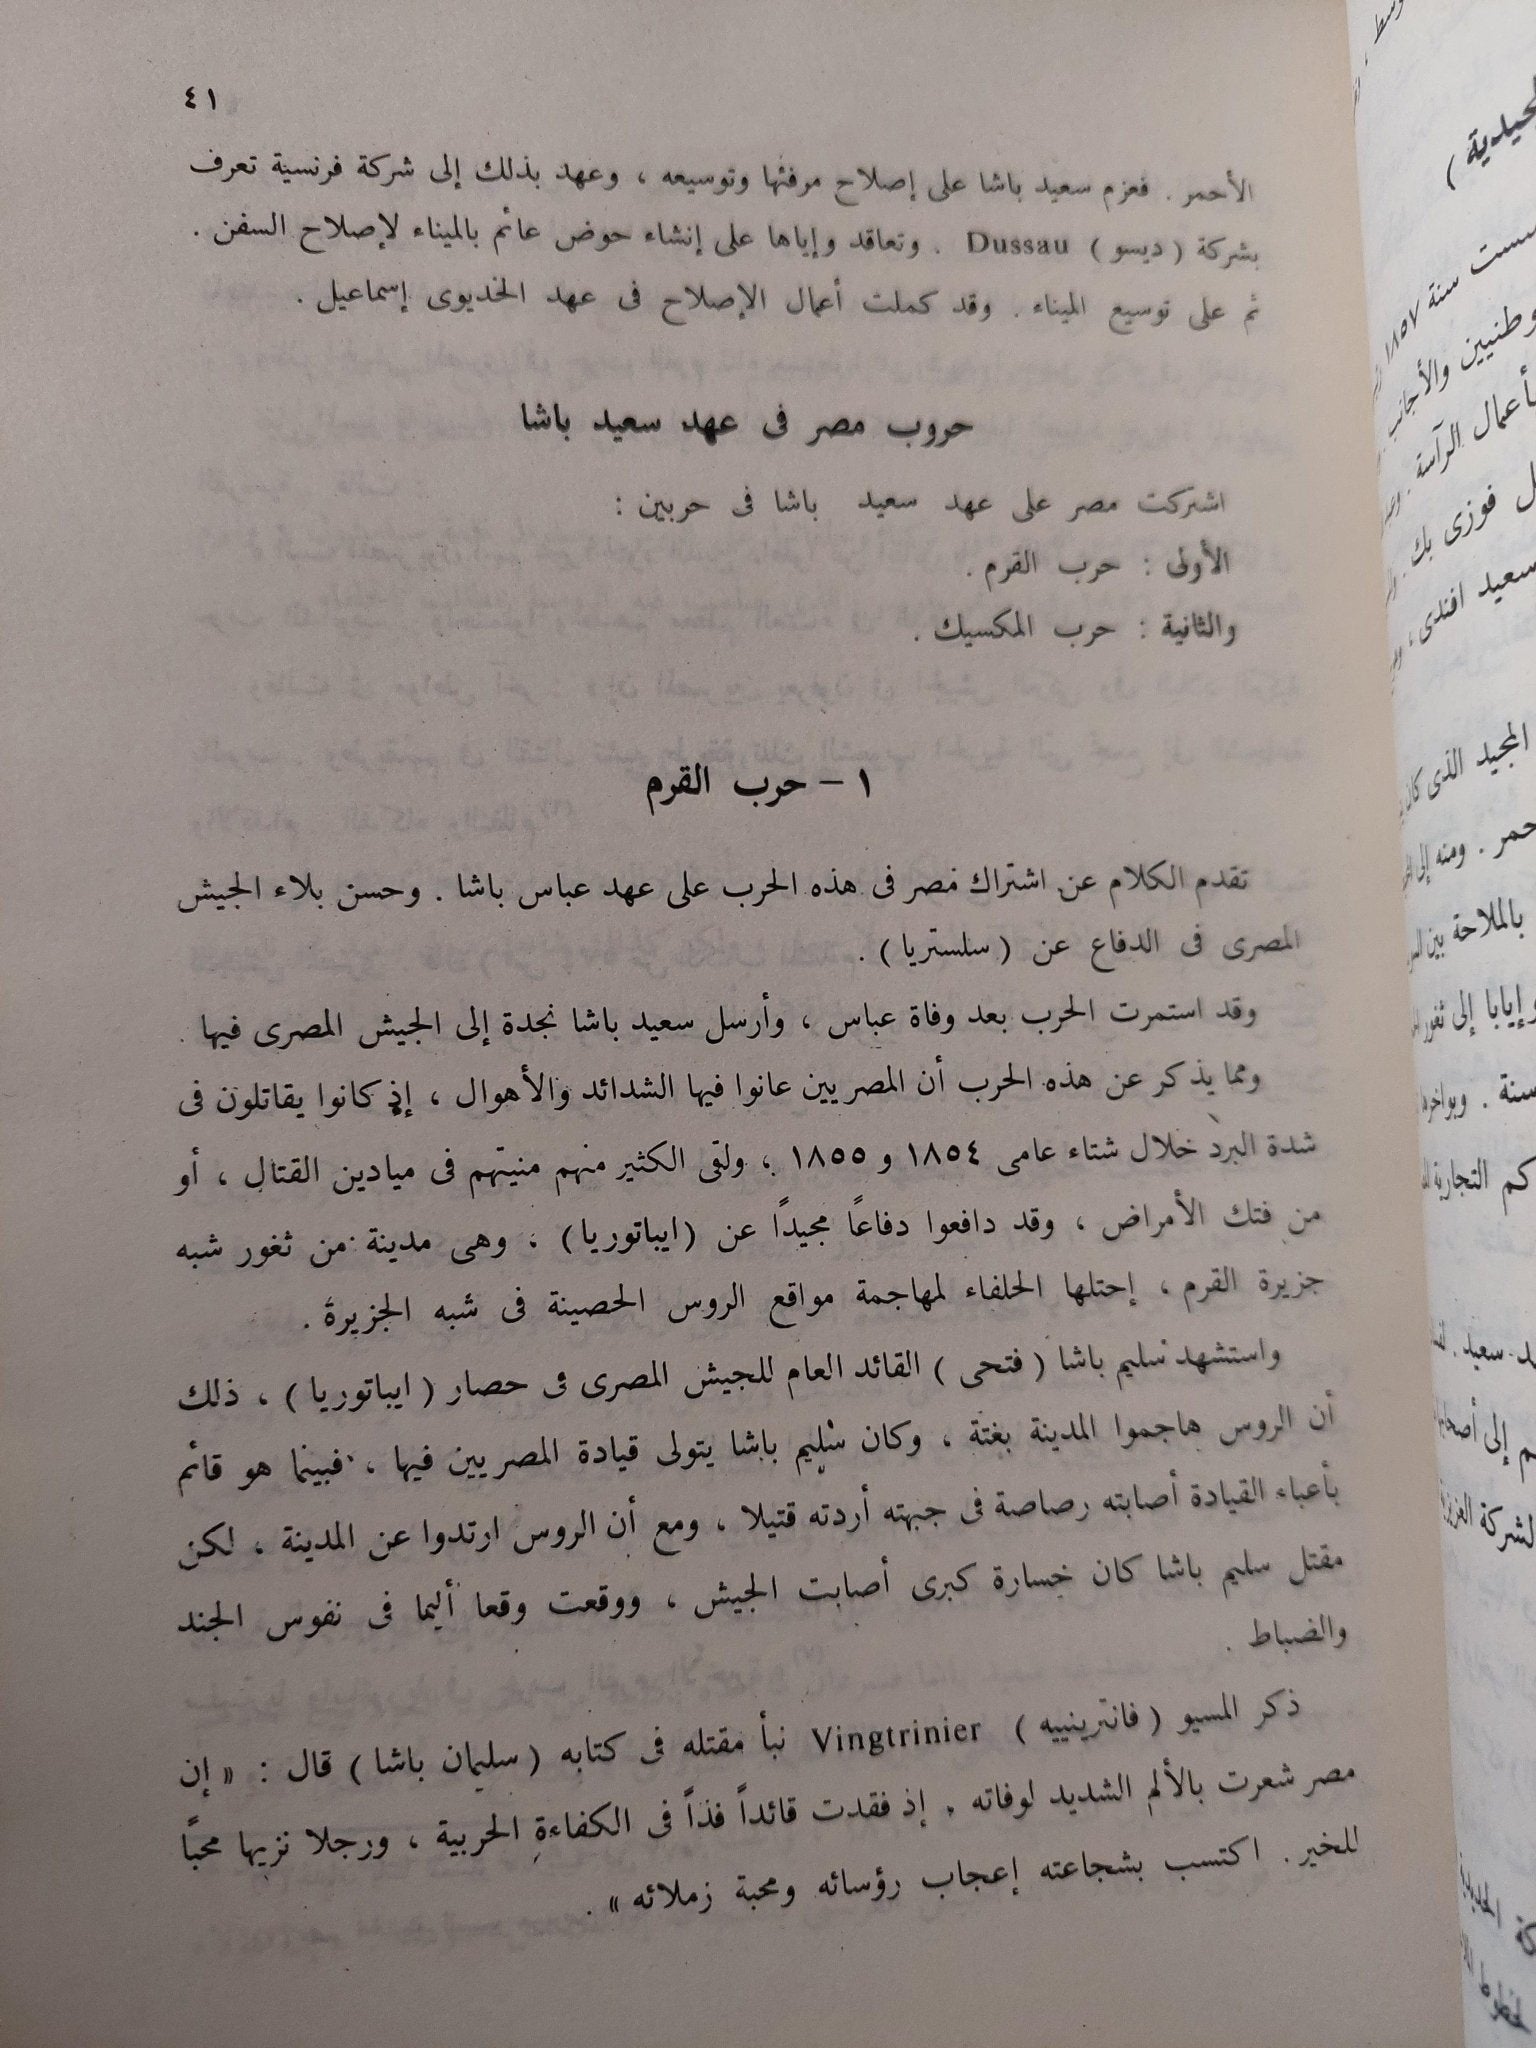 ٤١
الأحمر . فعزم سعيد باشا على إصلاح مرفئها وتوسيعه ، وعهد بذلك إلى شركة فرنسية تعرف
بشركة ( ديسو ) Dussau . وتعاقد وإياها على إنشاء حوض عائم بالميناء لإصلاح السفن .
ثم على توسيع الميناء . وقد كملت أعمال الإصلاح فى عهد الخديوى إسماعيل .
حروب مصر فى عهد سعيد باشا
اشتركت مصر على عهد سعيد باشا فى حربين :
الأولى : حرب القرم .
والثانية : حرب المكسيك .
١ – حرب القرم
تقدم الكلام عن اشتراك مصر فى هذه الحرب على عهد عباس باشا . وحسن بلاء الجيش
المصرى فى الدفاع عن ( سلستريا ) .
وقد استمرت الحرب بعد وفاة عباس ، وأرسل سعيد باشا نجدة إلى الجيش المصرى فيها .
ومما يذكر عن هذه الحرب أن المصريين عانوا فيها الشدائد والأهوال ، إذ كانوا يقاتلون فى
شدة البرد خلال شتاء عامى ١٨٥٤ و ١٨٥٥ ، ولقى الكثير منهم منيتهم فى ميادين القتال ، أو
من فتك الأمراض ، وقد دافعوا دفاعًا مجيدًا عن (ايباتوريا) ، وهى مدينة من ثغور شبه
جزيرة القرم ، إحتلها الحلفاء لمهاجمة مواقع الروس الحصينة فى شبه الجزيرة .
واستشهد سليم باشا ( فتحى ) القائد العام للجيش المصرى فى حصار ( ايباتوريا ) ، ذلك
أن الروس هاجموا المدينة بغتة ، وكان سليم باشا يتولى قيادة المصريين فيها ، فبينما هو قائم
بأعباء القيادة أصابته رصاصة فى جبهته أردته قتيلا ، ومع أن الروس ارتدوا عن المدينة ، لكن
مقتل سليم باشا كان خسارة كبرى أصابت الجيش ، ووقعت وقعا أليما فى نفوس الجند
والضباط .
ذكر المسيو ( فانترينييه ) Vingtrinier نبأ مقتله فى كتابه ( سليمان باشا ) قال : « إن
مصر شعرت بالألم الشديد لوفاته . إذ فقدت قائداً فذاً فى الكفاءة الحربية ، ورجلا نزيها محبًا
للخير . اكتسب بشجاعته إعجاب رؤسائه ومحبة زملائه » .
سنة ١٨٥٧
وطنيين والأجانب
بأعمال الرآسة .
فوزى بك .
سعيد افندى ،
المجيد الذى كان
ومنه إلى
بالملاحة بين
وإيابا إلى ثغور
سنة .
التجارية
سعيد .
إلى